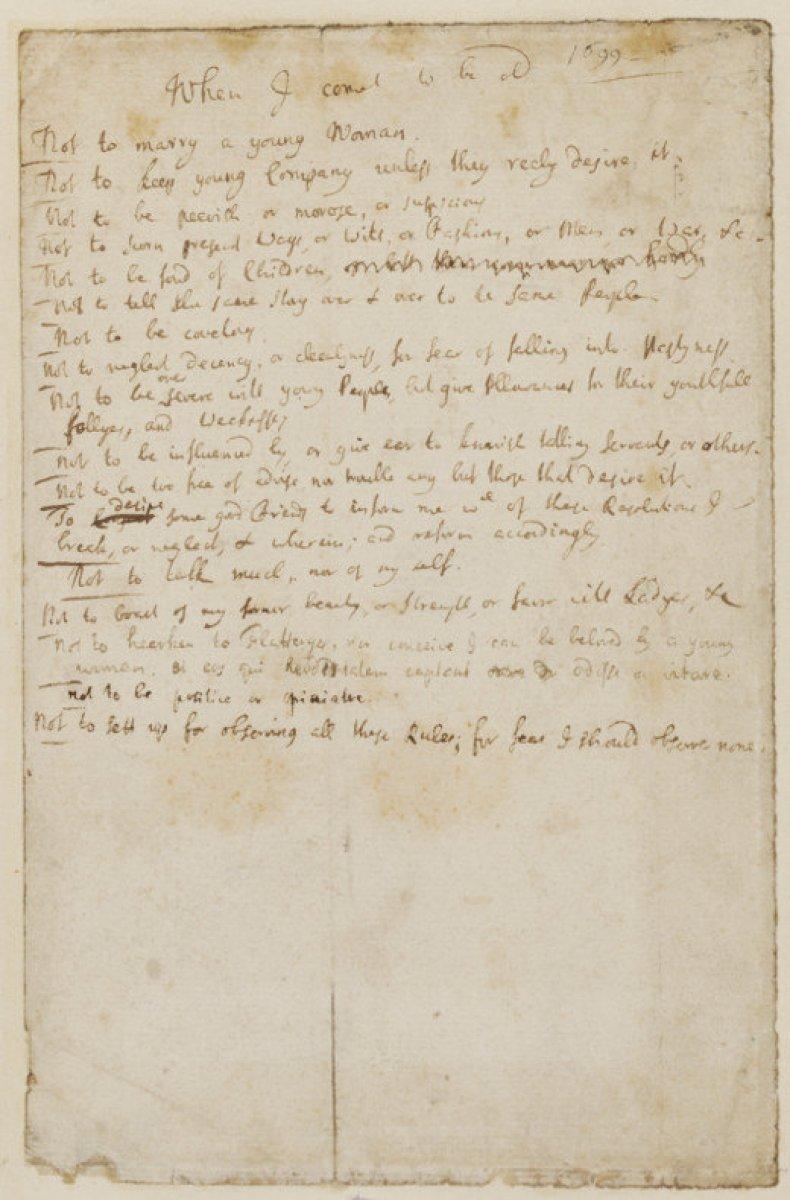 When I come to be old 1699
Not to marry a young Woman.
Not to keep young Company unless they reely desire it.
Not to be peevish or morose, or suspicious
Not to scorn present Ways, or Wits, or Fashions, or Men, or War, &c
Not to be fond of Children,
Not to tell the same story over & over to the same People.
Not to be covetous.
Not to neglect decency, or cleenlyness, for fear of falling into Nastyness.
Not to be over severe with young People, but give Allowances for their youthfull
follyes, and Weeknesses
Not to be influenced by, or give ear to knavish tatling Servants, or others.
Not to be too free of advise nor trouble any but those that desire it.
To desire some good Friends to inform me wch of these Resolutions I
break, or neglect, & wherein; and reform accordingly
Not to talk much, nor of my self.
Not to boast of my former beauty, or strength, or favor with Ladyes, &c
Not to hearken to Flatteryes, nor conceive I can be beloved by a young
woman. et eos qui hereditatem captant odisse ac vitare.
Not to be positive or opiniatre.
Not to sett up for observing all these Rules; for fear I should observe none.